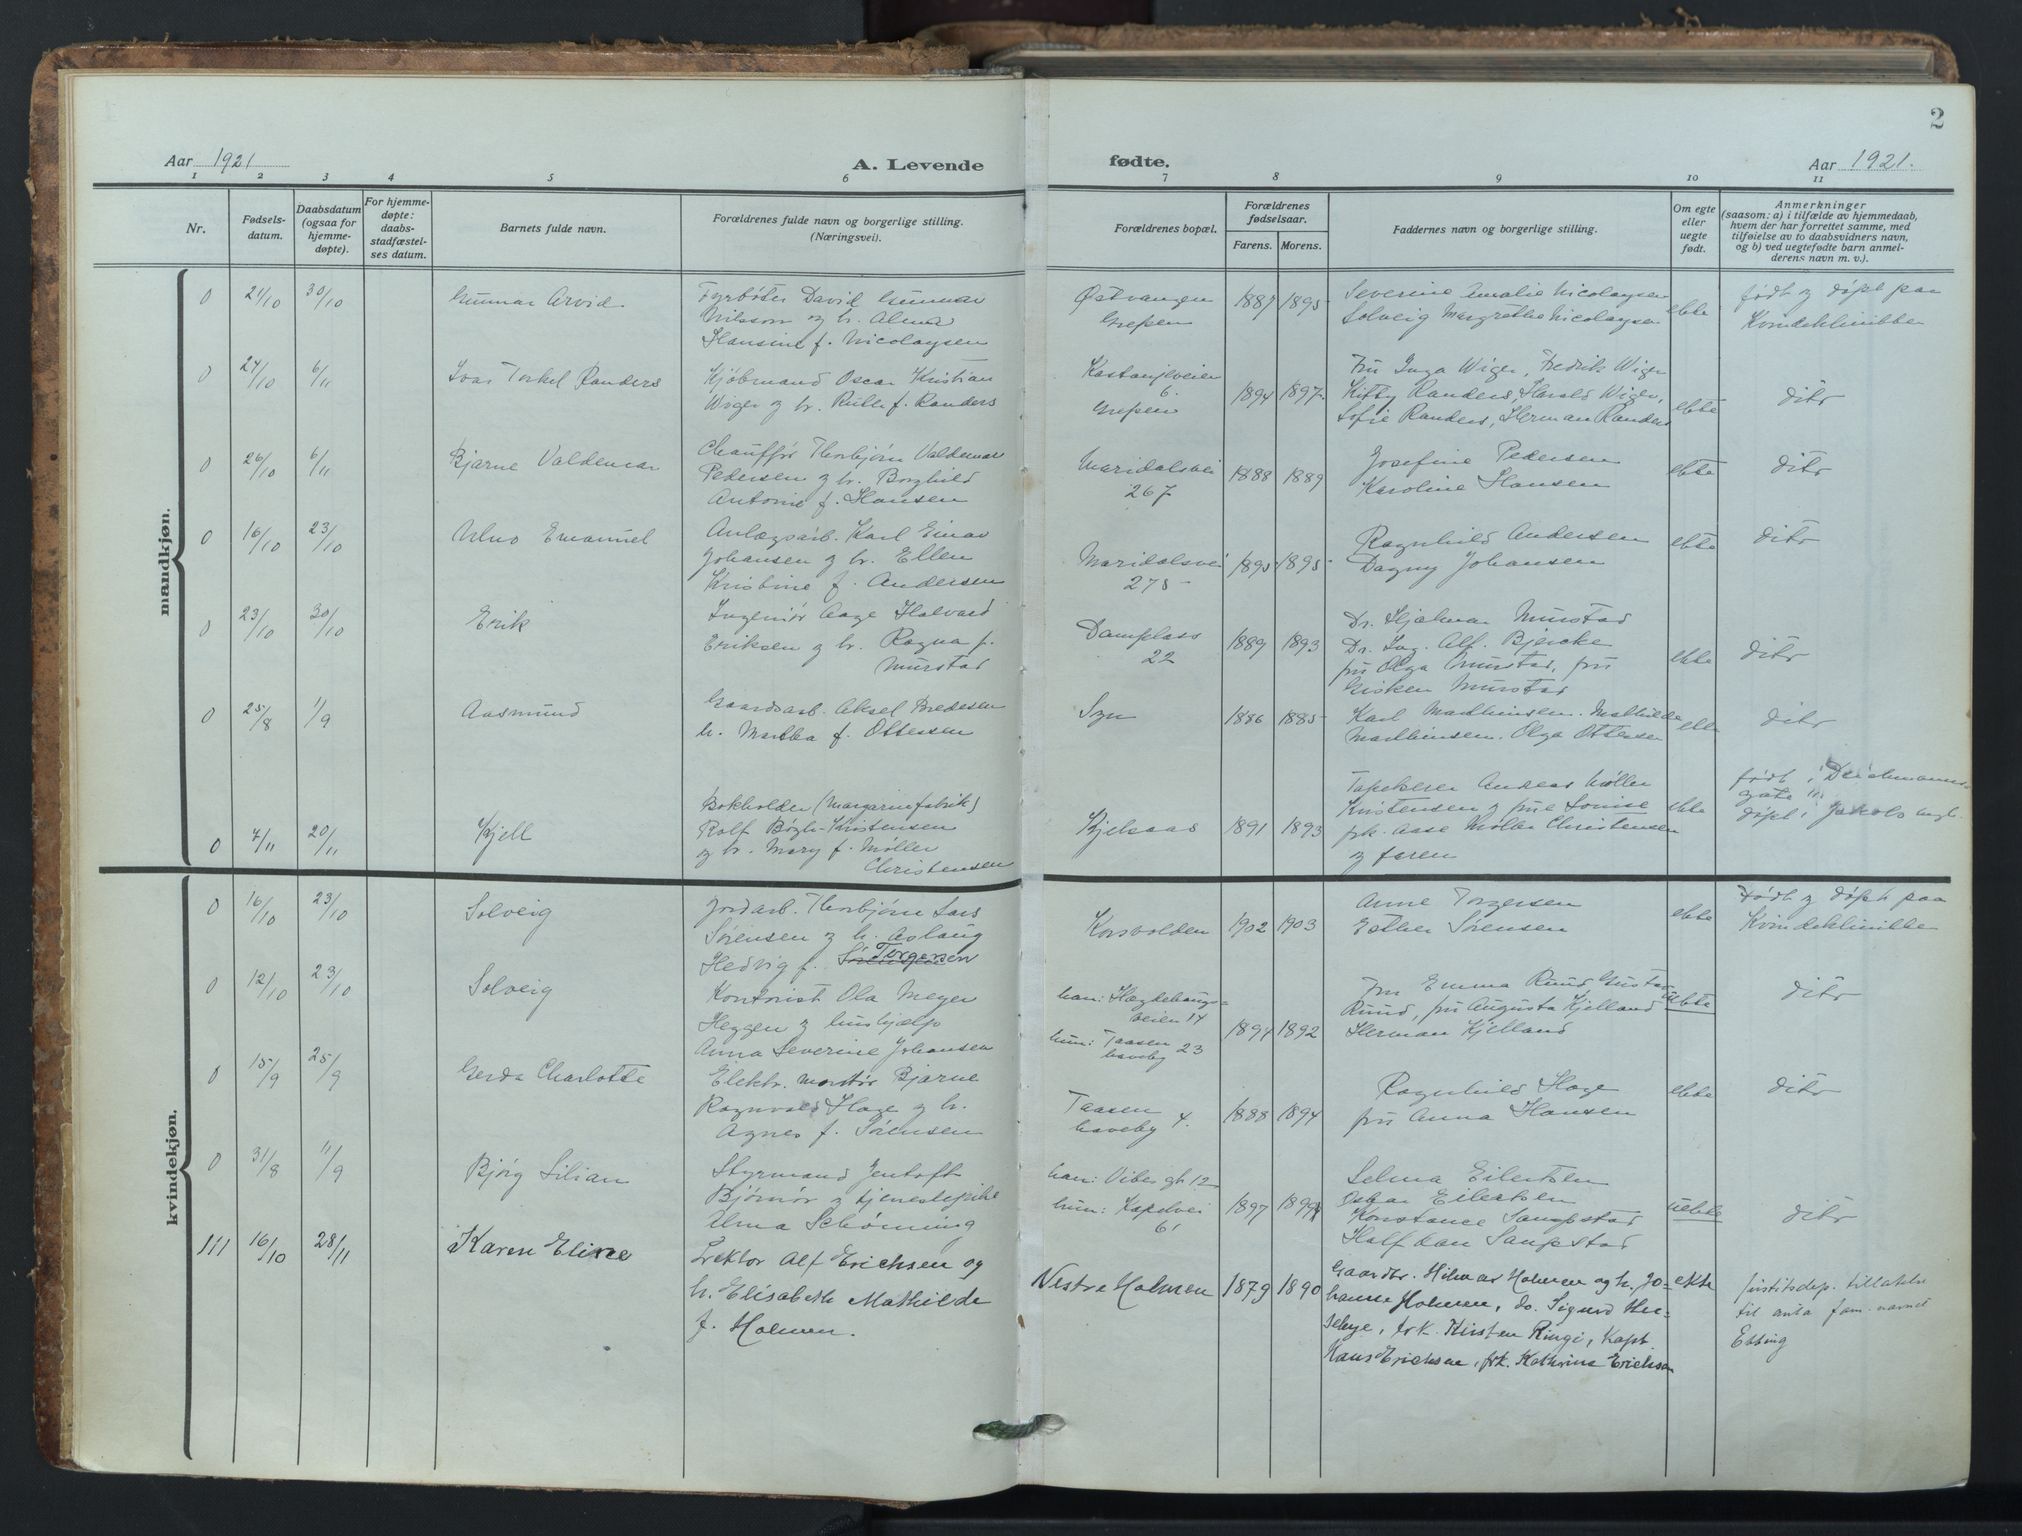 2
Aar 1921
A. Levende
fødte.
Aar 1921.
1 2 3 4 5 6 7 8 9 10 11
Nr.
Fødsels-
datum.
Daabsdatum
(ogsaa for
hjemme-
døpte).
For hjemme-
døpte:
daabs-
stadfæstel-
ses datum.
Barnets fulde navn.
Forældrenes fulde navn og borgerlige stilling.
(Næringsvei).
Forældrenes bopæl.
Forældrenes
fødselsaar.
Farens. Morens.
Faddernes navn og borgerlige stilling.
Om egte
eller
uegte
født.
Anmerkninger
(saasom: a) i tilfælde av hjemmedaab,
hvem der har forrettet samme, med
tilføielse av to daabsvidners navn,
og b) ved uegtefødte barn anmel-
derens navn m. v.).
mandkjøn.
0 21/10 30/10
Gunnar Arvid
Fyrbøter David Gunnar
Nilsson og h. Alma
Hansine f. Nicolaysen
Østvangen
Grefsen
1887 1895
Severine Amalie Nicolaysen
Solveig Margrethe Nicolaysen
ekte
født og døpt paa
Kvindeklinikke
0 24/10 6/11
Ivar Torkel Randers
Kjøbmand Oscar Kristian
Wiger og h. Ruth f. Randers
Kastanjeveien
6.
Grefsen
1894 1897
Fru Inga Wiger, Fredrik Wiger
Kitty Randers, Harald Wiger,
Sofie Randers, Herman Randers
ekte
dito
0 26/10 6/11
Bjarne Valdemar
Chauffør Thorbjørn Valdemar
Pedersen og h. Borghild
Antonie f. Hansen
Maridalsvei
267
1888 1889
Josefine Pedersen
Karoline Hansen
ekte
dito
0 16/10 23/10
Uno Emanuel
Anlægsarb. Karl Einar
Johansen og h. Ellen
Kristine f. Andersen
Maridalsvei
275
1895 1895
Ragnhild Andersen
Dagny Johansen
ekte
dito
0 23/10 30/10
Erik
Ingeniør Aage Halvard
Eriksen og h. Ragna f.
Murstad
Damplass
22
1889 1893
Dr. Hjalmar Murstad
Dr. Ing. Alf. Bjercke
fru Olga Murstad, fru
Gisken Murstad
ekte
dito
0 25/8 1/9
Aasmund
Gaardsarb. Aksel Bredesen
h. Martha f. Ottersen
Sogn
1886 1885
Karl Mathisen. Mathilde
Mathisen. Olga Ottersen
ekte
dito
0 7/11 20/11
Kjell
Bokholder (Margarinfabrik)
Rolf Bøgh-Kristensen
og h. Mary f. Møller
Christensen
Kjelsaas
1891 1893
Tapetserer Andreas Møller
Kristensen og frue Louise
frk. Aase Møller Christensen
og faren
ekte
født i Deichmanns-
gate
døpt i Jakobs
kvindekjøn.
0 16/10 23/10
Solveig
Jordarb. Thorbjørn Lars
Sørensen og h. Aslaug
Hedvig f. Torgersen
Korsvolden
1902 1903
Anne Torgersen
Esther Sørensen
ekte
Født og døpt paa
Kvindeklinikke
0 12/10 23/10
Solveig
Kontorist Ola Meyer
Heggen og hushjælp
Anna Severine Johansen
han: Hægdehaugs-
veien 14
hun: Taasen
haveby 23
1894 1892
Fru Emma Ruud Gustav
Ruud, fru Augusta Kjelland
Herman Kjelland
uekte
dito
0 15/9 25/9
Gerda Charlotte
Elektr. montør Bjarne
Ragnvald Hage og h.
Agnes f. Sørensen
Taasen
haveby 4.
1888 1894
Ragnhild Hage
fru Anna Hansen
ekte
dito
0 31/8 11/9
Bjørg Lilian
Styrmand Jentoft
Bjørnør og tjenestepike
Alma Schønning
han: Vibes gt 12
hun: Kapelvei
6
1897 1899
Selma Eilertsen
Oskar Eilertsen
Konstance Sampstad
Halfdan Sampstad
uekte
dito
111 16/10 28/11
Karen Elise
Lektor Alf Erichsen og
h. Elisabeth Mathilde
f. Holmen.
Vestre Holmen
1879 1890
Gaardbr. Hilmar Holmen og h. Jo-
hanne Holmen, do. Sigurd Hes-
selye, frk. Kirsten Ringi, Kapt.
Hans Erichsen, frk. Kathrine Erichsen
ekte
Justitsdep. tillatelse
til anta fam.-navnet
Ebbing